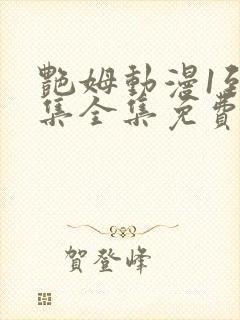 艷姆動漫1至
集全集免費
賀登峰